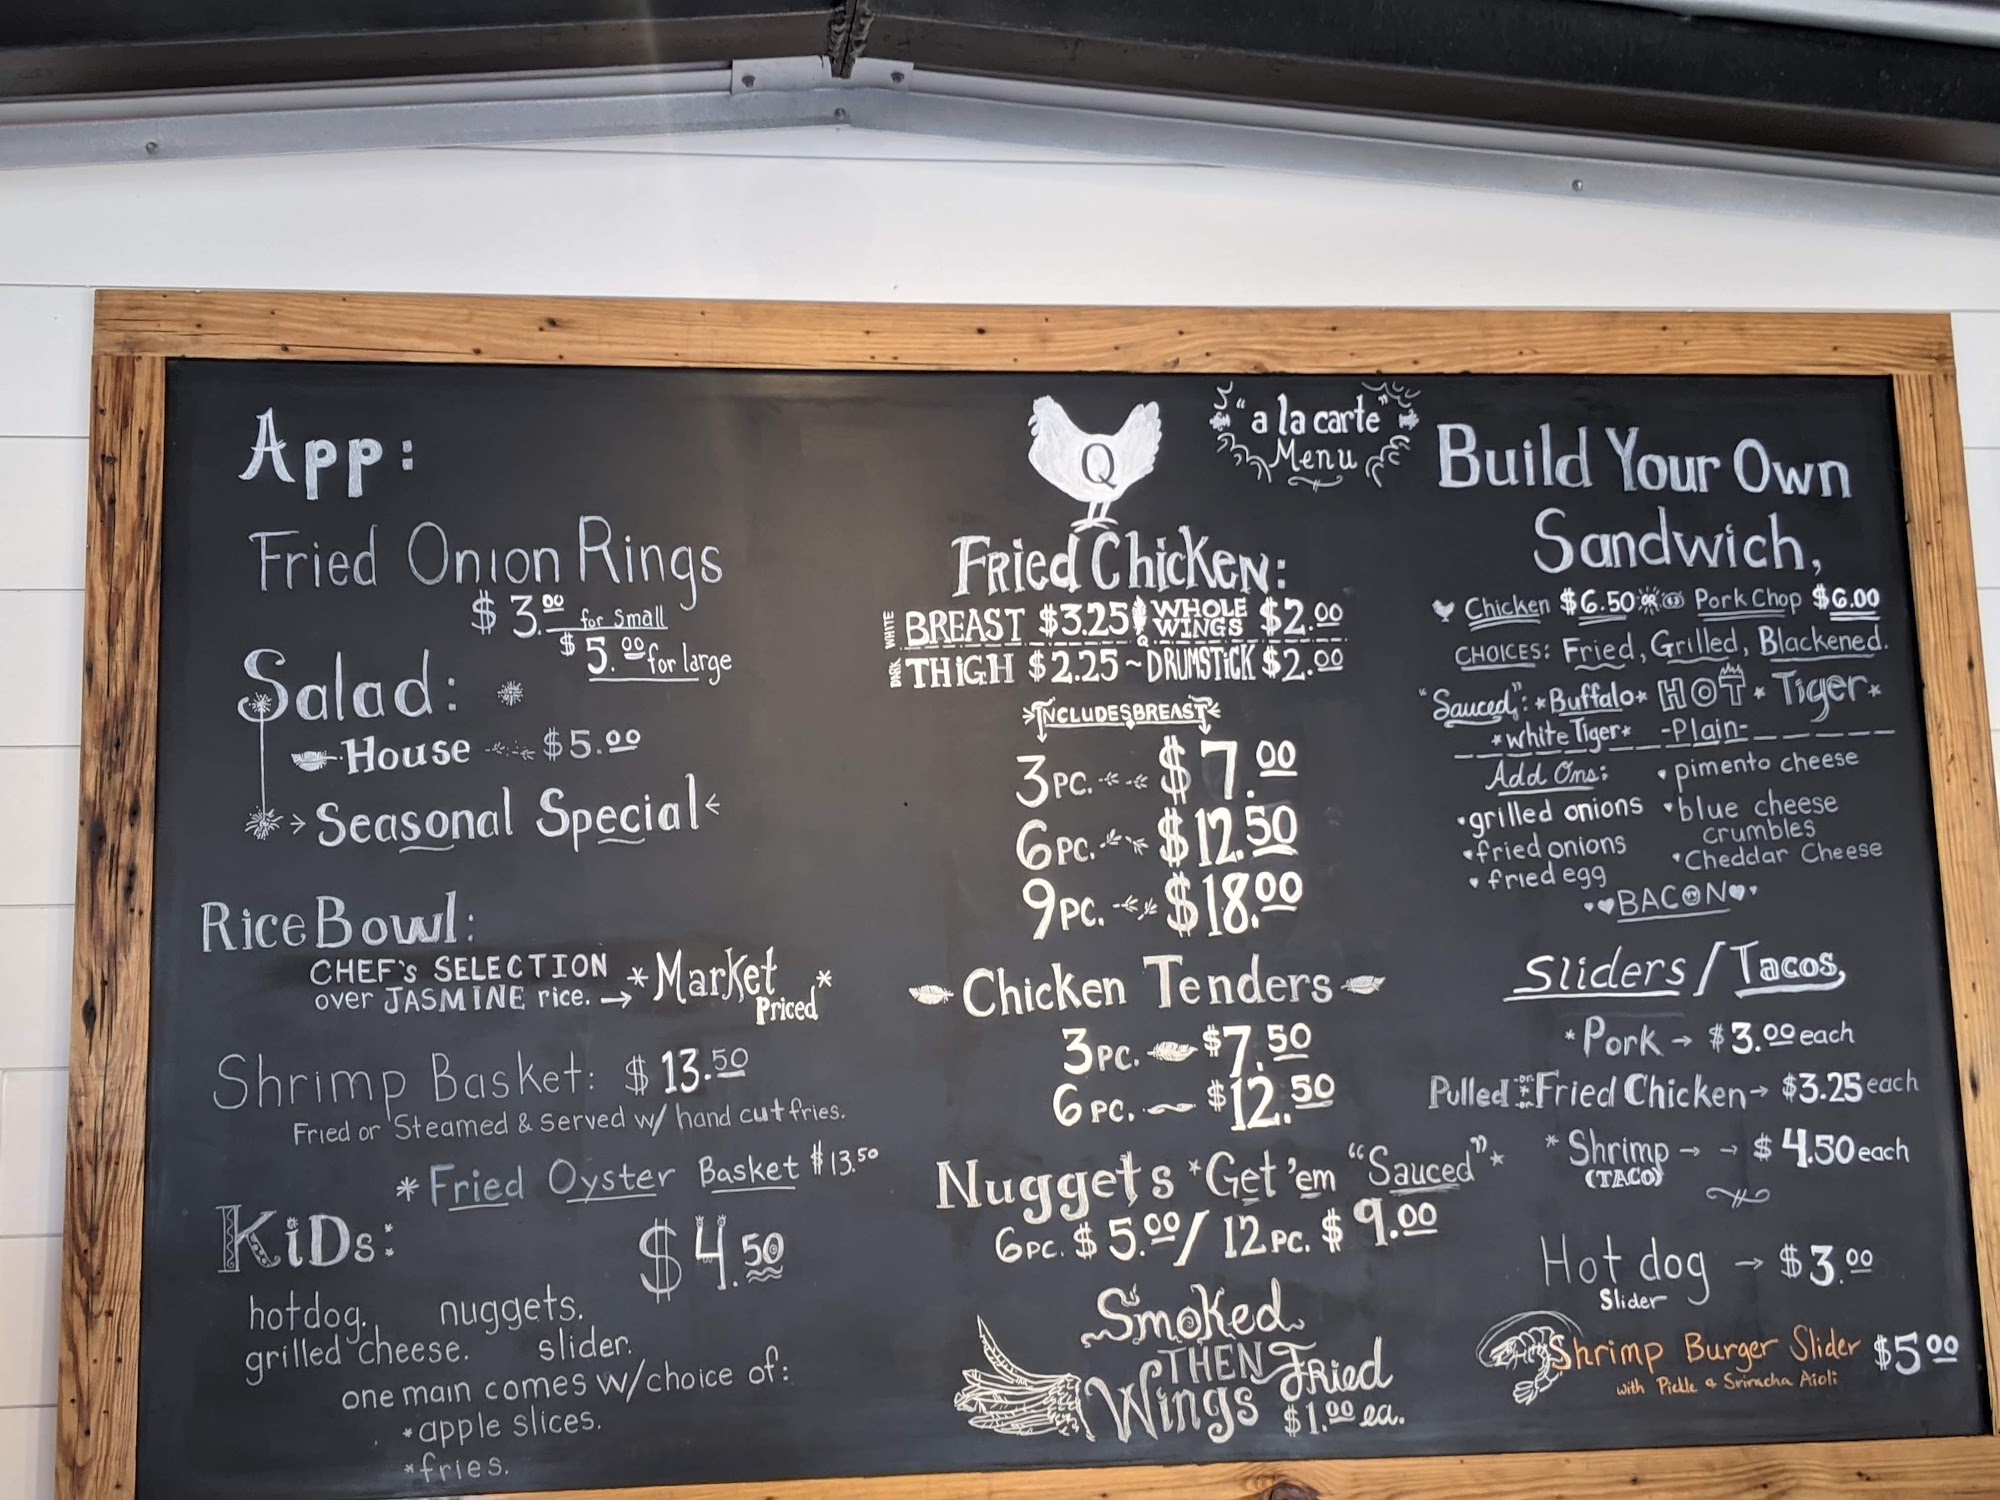 App:
Fried Onion Rings
$3.00 for small
$5.00 for large
Salad:
House $5.00
Seasonal Special
Rice Bowl:
CHEF's SELECTION
over JASMINE rice. → *Market Priced*
Shrimp Basket: $13.50
Fried or Steamed & served w/ hand cut fries.
*Fried Oyster Basket $13.50
KiDs: $4.50
hotdog. nuggets.
grilled cheese. slider.
one main comes w/choice of:
*apple slices.
*fries.
Q
"a la carte"
Menu
Fried Chicken:
WHITE BREAST $3.25 WHOLE WINGS $2.00
Q
DARK THiGH $2.25 ~ DRUMSTiCK $2.00
INCLUDES BREAST
3 PC. $7.00
6 PC. $12.50
9 PC. $18.00
Chicken Tenders
3 PC. $7.50
6 PC. $12.50
Nuggets *Get 'em "Sauced"*
6 PC. $5.00/ 12 PC. $9.00
Smoked
THEN Fried
Wings $1.00 ea.
Build Your Own
Sandwich,
Chicken $6.50 OR Pork Chop $6.00
CHOICES: Fried, Grilled, Blackened.
"Sauced": *Buffalo* HOT * Tiger*
*white Tiger* -Plain-
Add Ons:
•grilled onions
•fried onions
•fried egg
•pimento cheese
•blue cheese
crumbles
•Cheddar Cheese
BACON
Sliders/Tacos,
*Pork → $3.00 each
Pulled or Fried Chicken → $3.25 each
*Shrimp → → $4.50 each
(TACO)
Hot dog → $3.00
Slider
Shrimp Burger Slider $5.00
with Pickle & Sriracha Aioli